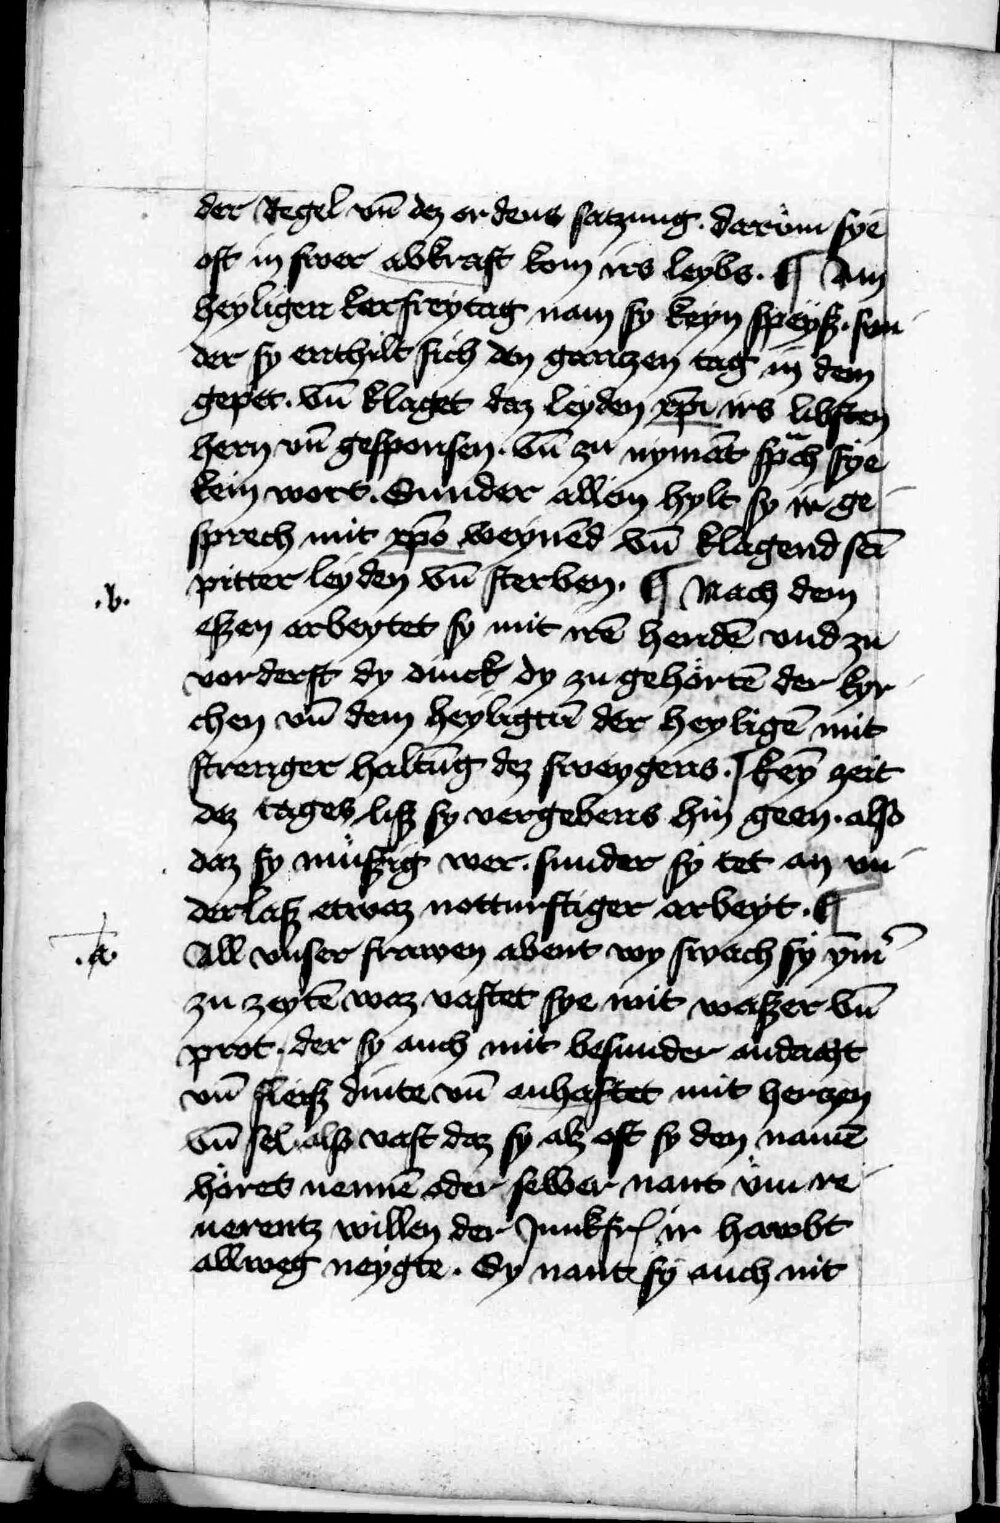 der Regel vn̄ dez ordens satzung. darūm sye
oft in swer abkraft kom irs leybs. ¶ Am
heyligen karfreytag nam sy keyn speysz. sun
der sy enthilt sich den gantzen tag in dem
gepet. vn̄ klaget daz leyden xp̄i irs libsten
hern vn̄ gesponsen. vn̄ zu nymāt sprach sye
kein wort. Sunder allein hylt sy ir ge
sprech mit xp̄o weynēd vn̄ klagend sei
pitter leyden vn̄ sterben. ¶ Nach dem
.b.
essen arbeytet sy mit irē hendē vnd zu
vorderst dy dinck dy zu gehörtē der kyr
chen vn̄ dem heyligtū der heyligē mit
strenger haltūg dez sweygens. ¶ keȳ zeit
dez tages lisz sy vergebens hin geen. also
daz sy müszig wer. sunder sy tet an vn
derlasz etwaz notturftiger arbeyt. ¶
.a.
All vnser frawen abent wy swach sy ym̄
zu zeytē waz vastet sye mit waszer vn̄
prot. der sy auch mit besunder andacht
vn̄ fleisz dinte vn̄ anhaftet mit hertzen
vn̄ sel. also vast daz sy alz oft sy den namē
höret nennē oder selber nant üm re
uerentz willen der Junkfr ir hawbt
allweg neygte. Sy nant sy auch nit